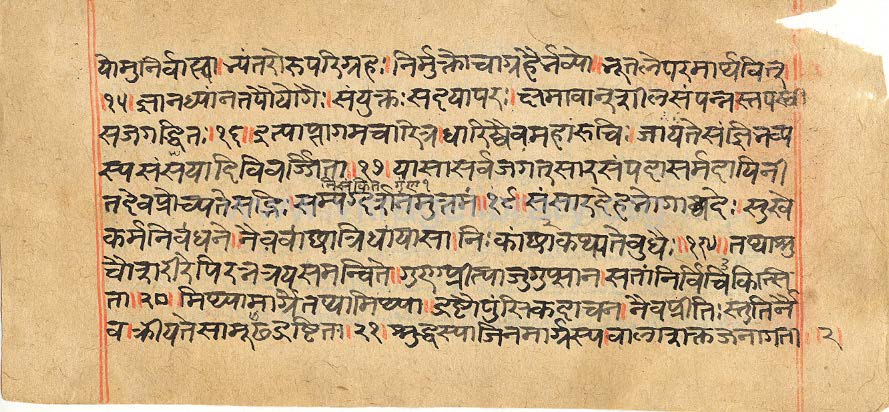 योमुनिर्वाह्या।भ्यंतरोरुपरिग्रहः।निर्मुक्तोचाग्रहैर्नव्यो॥भूतलेपरमार्थवित्
१५॥ज्ञानध्यानतपोयोगैः।संयुक्तःसदयापरः॥क्षमावान्शीलसंपन्नस्तपस्वी
सजगद्धितः॥१६॥इत्याप्तागमचारित्र।धारिस्वैवमहारुचिः।जायतेसंज्ञिनव्य
स्यसंसयादिविवर्ज्जिता॥१७॥यासासर्वजगत्सारसंपदासर्मदायिनी
निसंकितगुण१
तदेवप्रोच्यतेसद्भिःसम्यग्दर्शनमुत्तमं॥१८॥संसारदेहभोगा सुखे
कर्मनिबंधने॥नैववांछात्रिधायासा॥निःकांक्षाकथ्यतेबुधैः॥१९॥तथाशु
चौशरीरेपिरत्नत्रयसमन्विते॥गुणप्रीत्याजुगुप्सान।सतांनिर्विचिकित्सि
ता॥२०॥मिथ्यामार्गेतथामिथ्या।दृष्टौपुंसिकदाचन।नैवप्रीतिःस्तुतिर्नै
व।क्रीयतेसामूढदृष्टिता॥२१॥शुद्धस्यजिनमार्गस्य।बालाशक्तजनागता॥ २